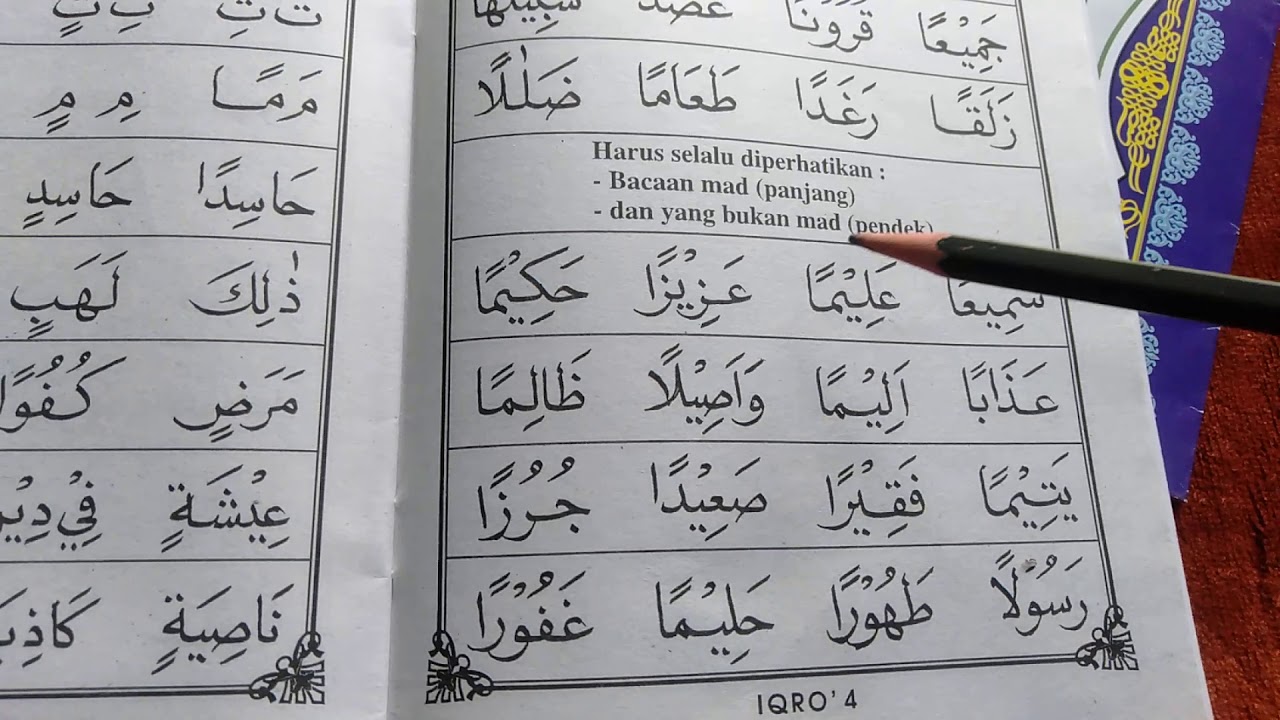 جَمِيْعًا قَرُوْنَا
زَلَقًا رَغَدًا طَعَامًا ضَلٰلًا
Harus selalu diperhatikan :
- Bacaan mad (panjang)
- dan yang bukan mad (pendek)
سَمِيْعًا عَلِيْمًا عَزِيْزًا حَكِيْمًا
عَذَابًا اَلِيْمًا وَاَصِيْلًا ظَالِمًا
يَتِيْمًا فَقِيْرًا صَعِيْدًا جُرُزًا
رَسُوْلًا طَهُوْرًا حَلِيْمًا غَفُوْرًا
IQRO' 4
تَ تِ تٍ
مَ مًا مِ مٍ
حَاسِدًا حَاسِدٍ
ذٰلِكَ لَهَبٍ
مَرَضٍ كُفُوًا
عِيْشَةٍ فِيْ
نَاصِيَةٍ